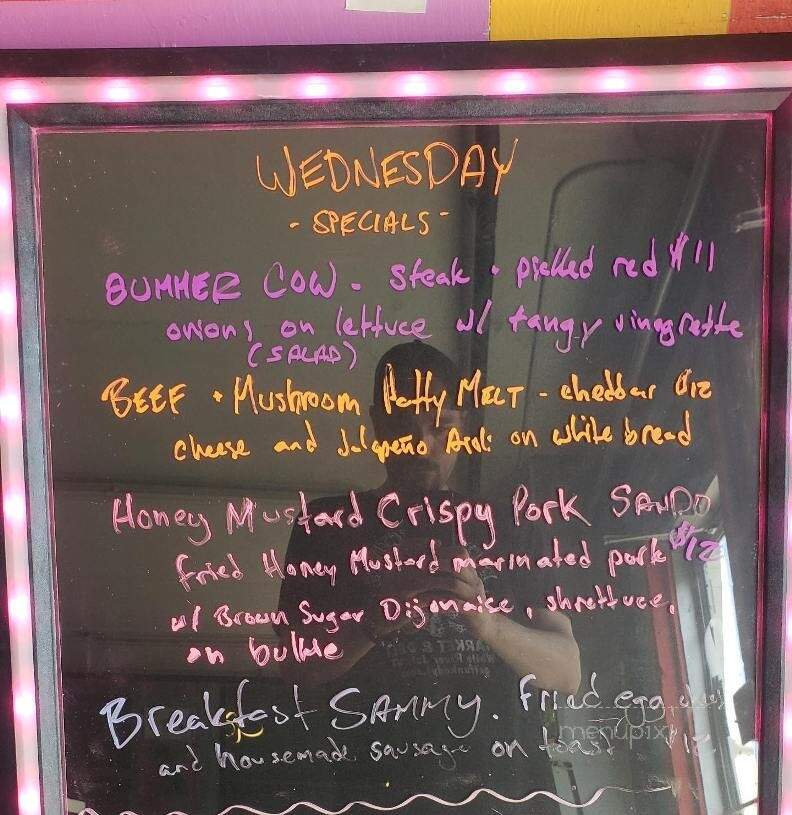 WEDNESDAY
- SPECIALS -
BUMMER COW - Steak + pickled red $11
onions on lettuce w/ tangy vinagrette
(SALAD)
BEEF + Mushroom Patty MELT - cheddar $12
cheese and Jalapeño Aioli on white bread
Honey Mustard Crispy Pork SANDO
fried Honey Mustard marinated pork $12
w/ Brown Sugar Dijonaise, shrettuce,
on bulkie
Breakfast SAMMY. Fried egg,
and housemade sausage on toast $12
menupix
MARKET & DELI